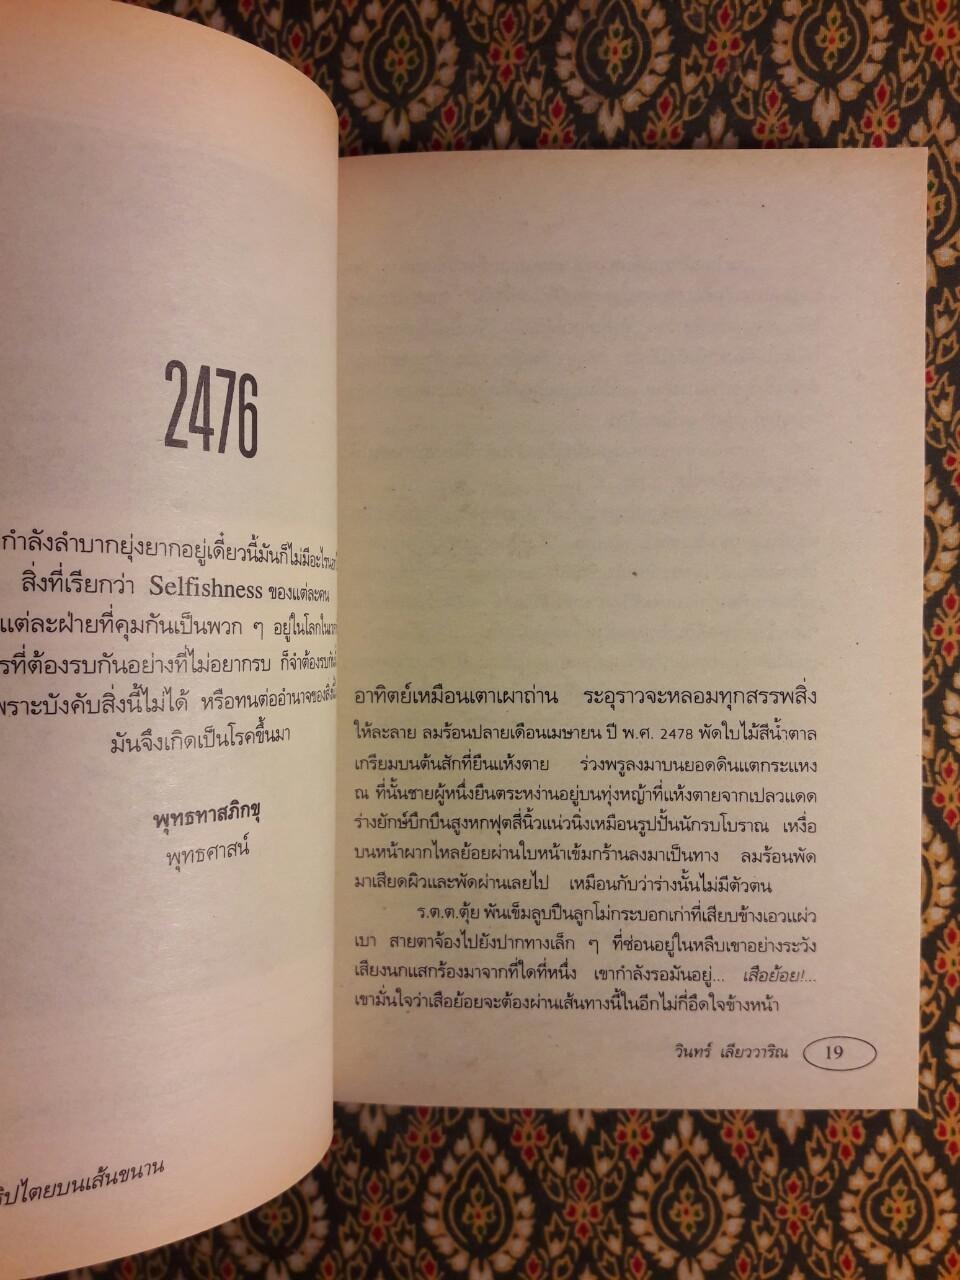 2476
กำลังลำบากยุ่งยากอยู่เดี๋ยวนี้มันก็ไม่มีอะไร
สิ่งที่เรียกว่า Selfishness ของแต่ละคน
แต่ละฝ่ายที่คุมกันเป็นพวก ๆ อยู่ในโลก
ที่ต้องรบกันอย่างที่ไม่อยากรบ ก็จำต้องรบกัน
เพราะบังคับสิ่งนี้ไม่ได้ หรือทนต่ออำนาจของสิ่งนี้
มันจึงเกิดเป็นโรคขึ้นมา
พุทธทาสภิกขุ
พุทธศาสน์
ธิปไตยบนเส้นขนาน
อาทิตย์เหมือนเตาเผาถ่าน ระอุราวจะหลอมทุกสรรพสิ่ง
ให้ละลาย ลมร้อนปลายเดือนเมษายน ปี พ.ศ. 2478 พัดใบไม้สีน้ำตาล
เกรียมบนต้นสักที่ยืนแห้งตาย ร่วงพรูลงมาบนยอดดินแตกระแหง
ณ ที่นั้นชายผู้หนึ่งยืนตระหง่านอยู่บนทุ่งหญ้าที่แห้งตายจากเปลวแดด
ร่างยักษ์บึกบึนสูงหกฟุตสี่นิ้วแน่วนิ่งเหมือนรูปปั้นนักรบโบราณ เหงื่อ
บนหน้าผากไหลย้อยผ่านใบหน้าเข้มกร้านลงมาเป็นทาง ลมร้อนพัด
มาเสียดผิวและพัดผ่านเลยไป เหมือนกับว่าร่างนั้นไม่มีตัวตน
ร.ต.ต.ตุ้ย พันเข็มลูบปืนลูกโม่กระบอกเก่าที่เสียบข้างเอวแผ่ว
เบา สายตาจ้องไปยังปากทางเล็ก ๆ ที่ซ่อนอยู่ในหลืบเขาอย่างระวัง
เสียงนกแสกร้องมาจากที่ใดที่หนึ่ง เขากำลังรอมันอยู่... เสือย้อย!...
เขามั่นใจว่าเสือย้อยจะต้องผ่านเส้นทางนี้ในอีกไม่กี่อึดใจข้างหน้า
วินทร์ เลียววาริณ 19